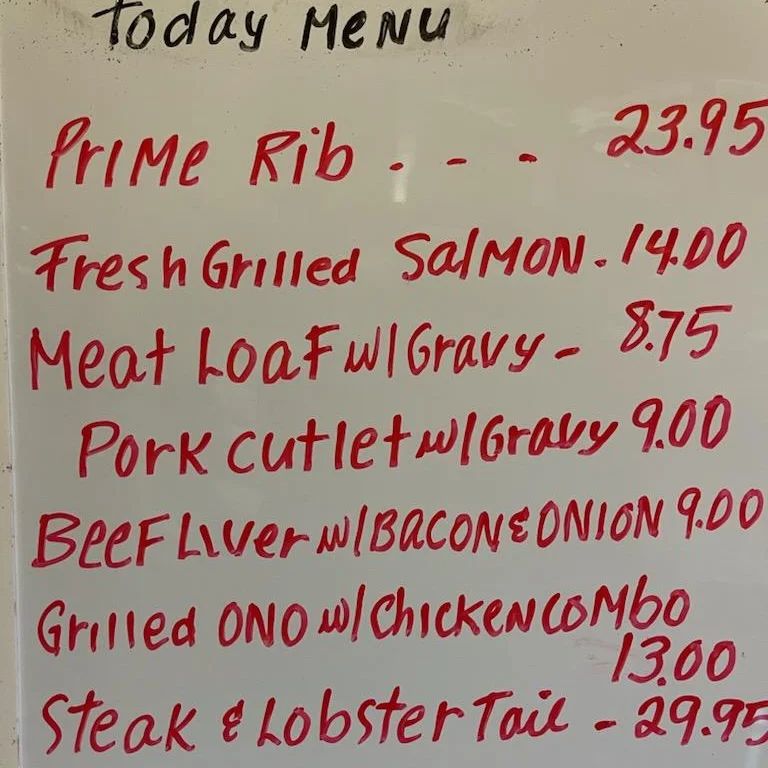 Today Menu
Prime Rib . - - - 23.95
Fresh Grilled Salmon . 14.00
Meat Loaf w/ Gravy - 8.75
Pork cutlet w/ Gravy 9.00
Beef Liver w/ BACON & ONION 9.00
Grilled ONO w/ Chicken combo
13.00
Steak & Lobster Tail - 29.95